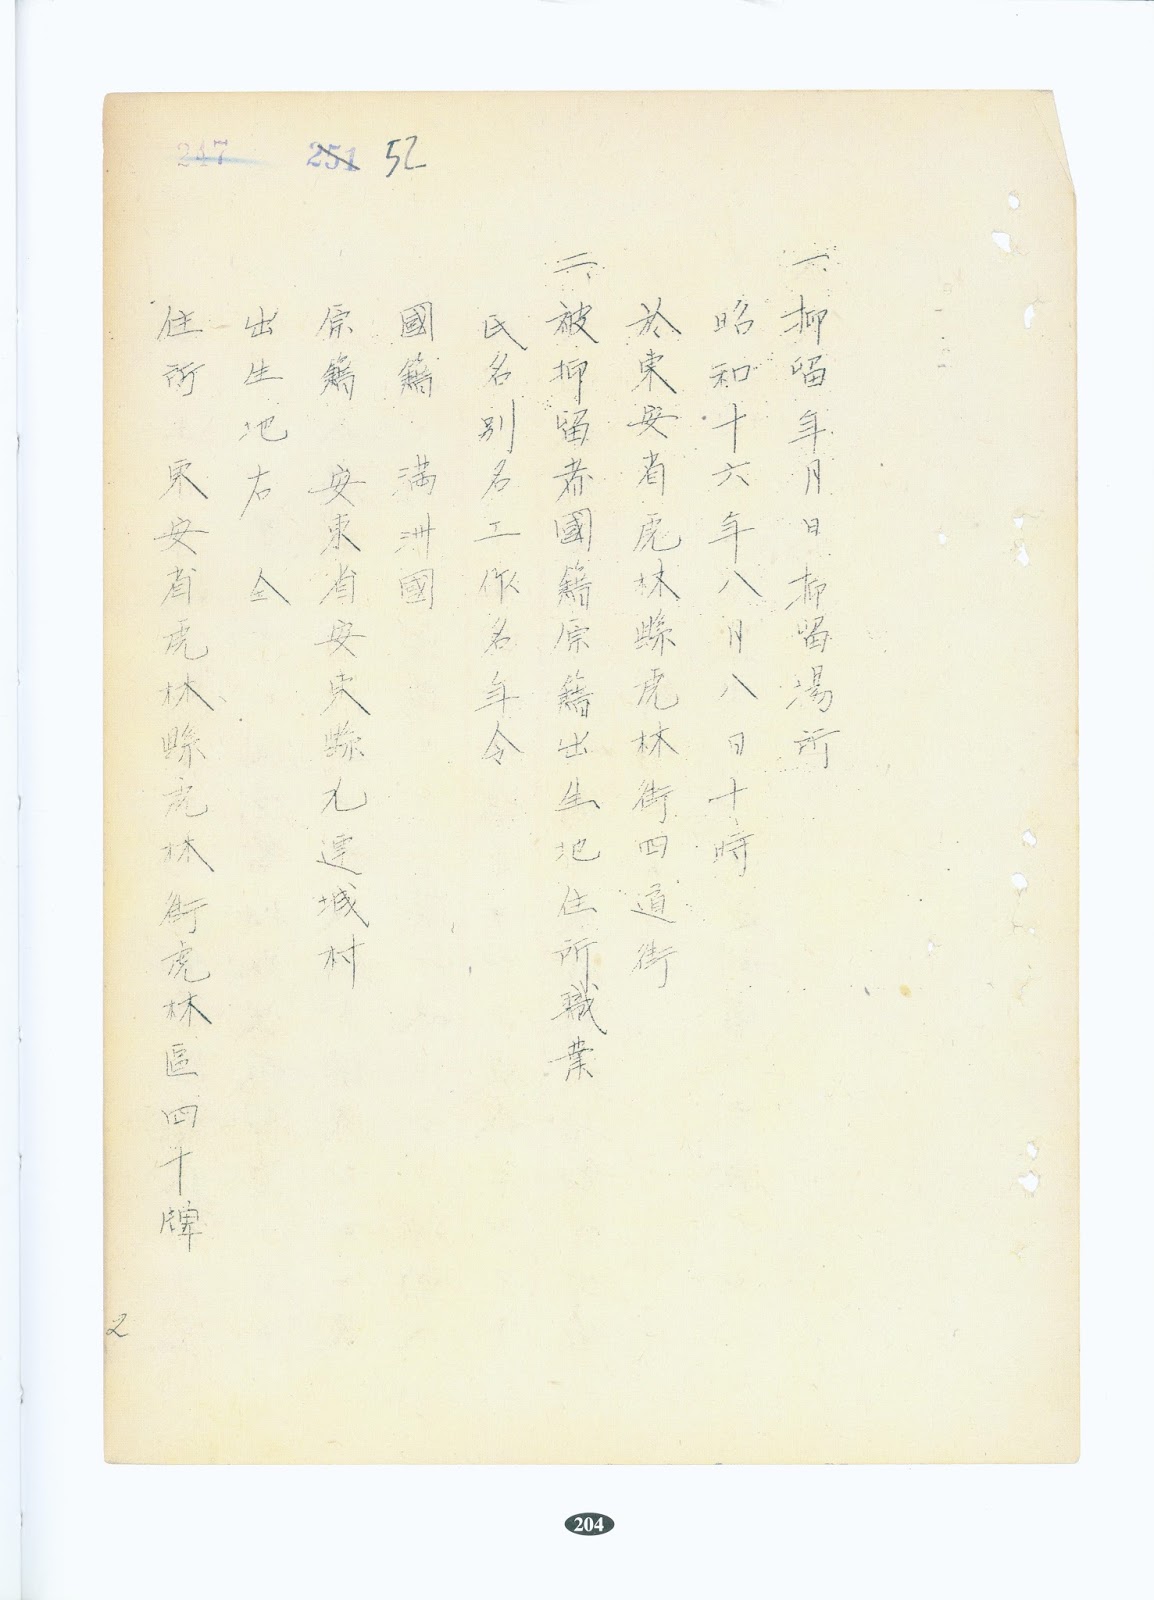 247 251 52
一、抑留年月日抑留場所
昭和十六年八月八日十時
於東安省虎林縣虎林街四道街
二、被抑留者國籍原籍出生地住所職業
氏名別名工作名年令
國籍 満洲國
原籍 安東省安東縣九連城村
出生地右 仝
住所 東安省虎林縣虎林街虎林區四十牌
2
204